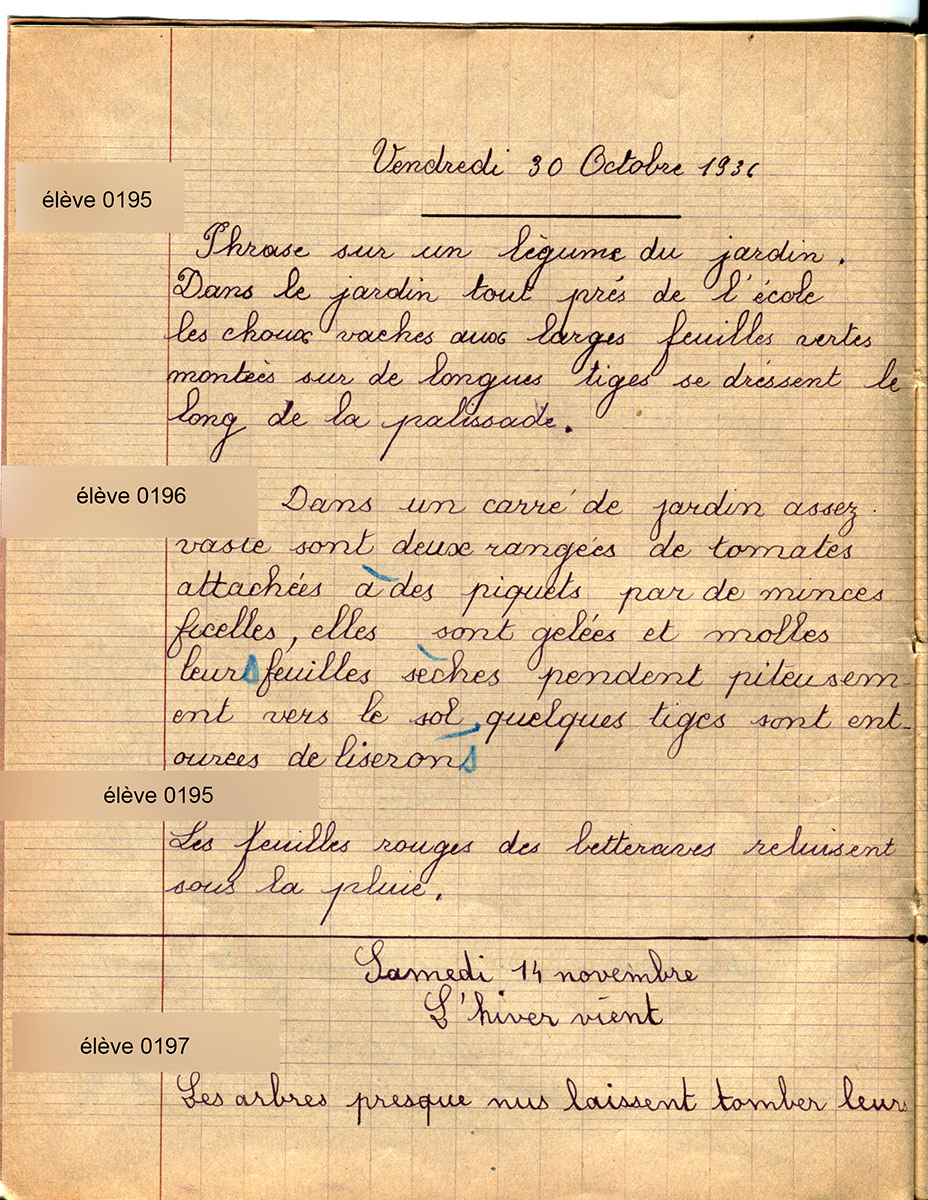 Vendredi 30 Octobre 1936
élève 0195
Phrase sur un légume du jardin.
Dans le jardin tout prés de l'école
les choux vaches aux larges feuilles vertes
montées sur de longues tiges se dréssent le
long de la palissade.
élève 0196
Dans un carré de jardin assez
vaste sont deux rangées de tomates
attachées à des piquets par de minces
ficelles, elles sont gelées et molles
leurs feuilles sèches pendent piteusem-
ent vers le sol, quelques tiges sont ent-
ourées de liserons
élève 0195
Les feuilles rouges des betteraves reluisent
sous la pluie.
Samedi 14 novembre
L'hiver vient
élève 0197
Les arbres presque nus laissent tomber leurs